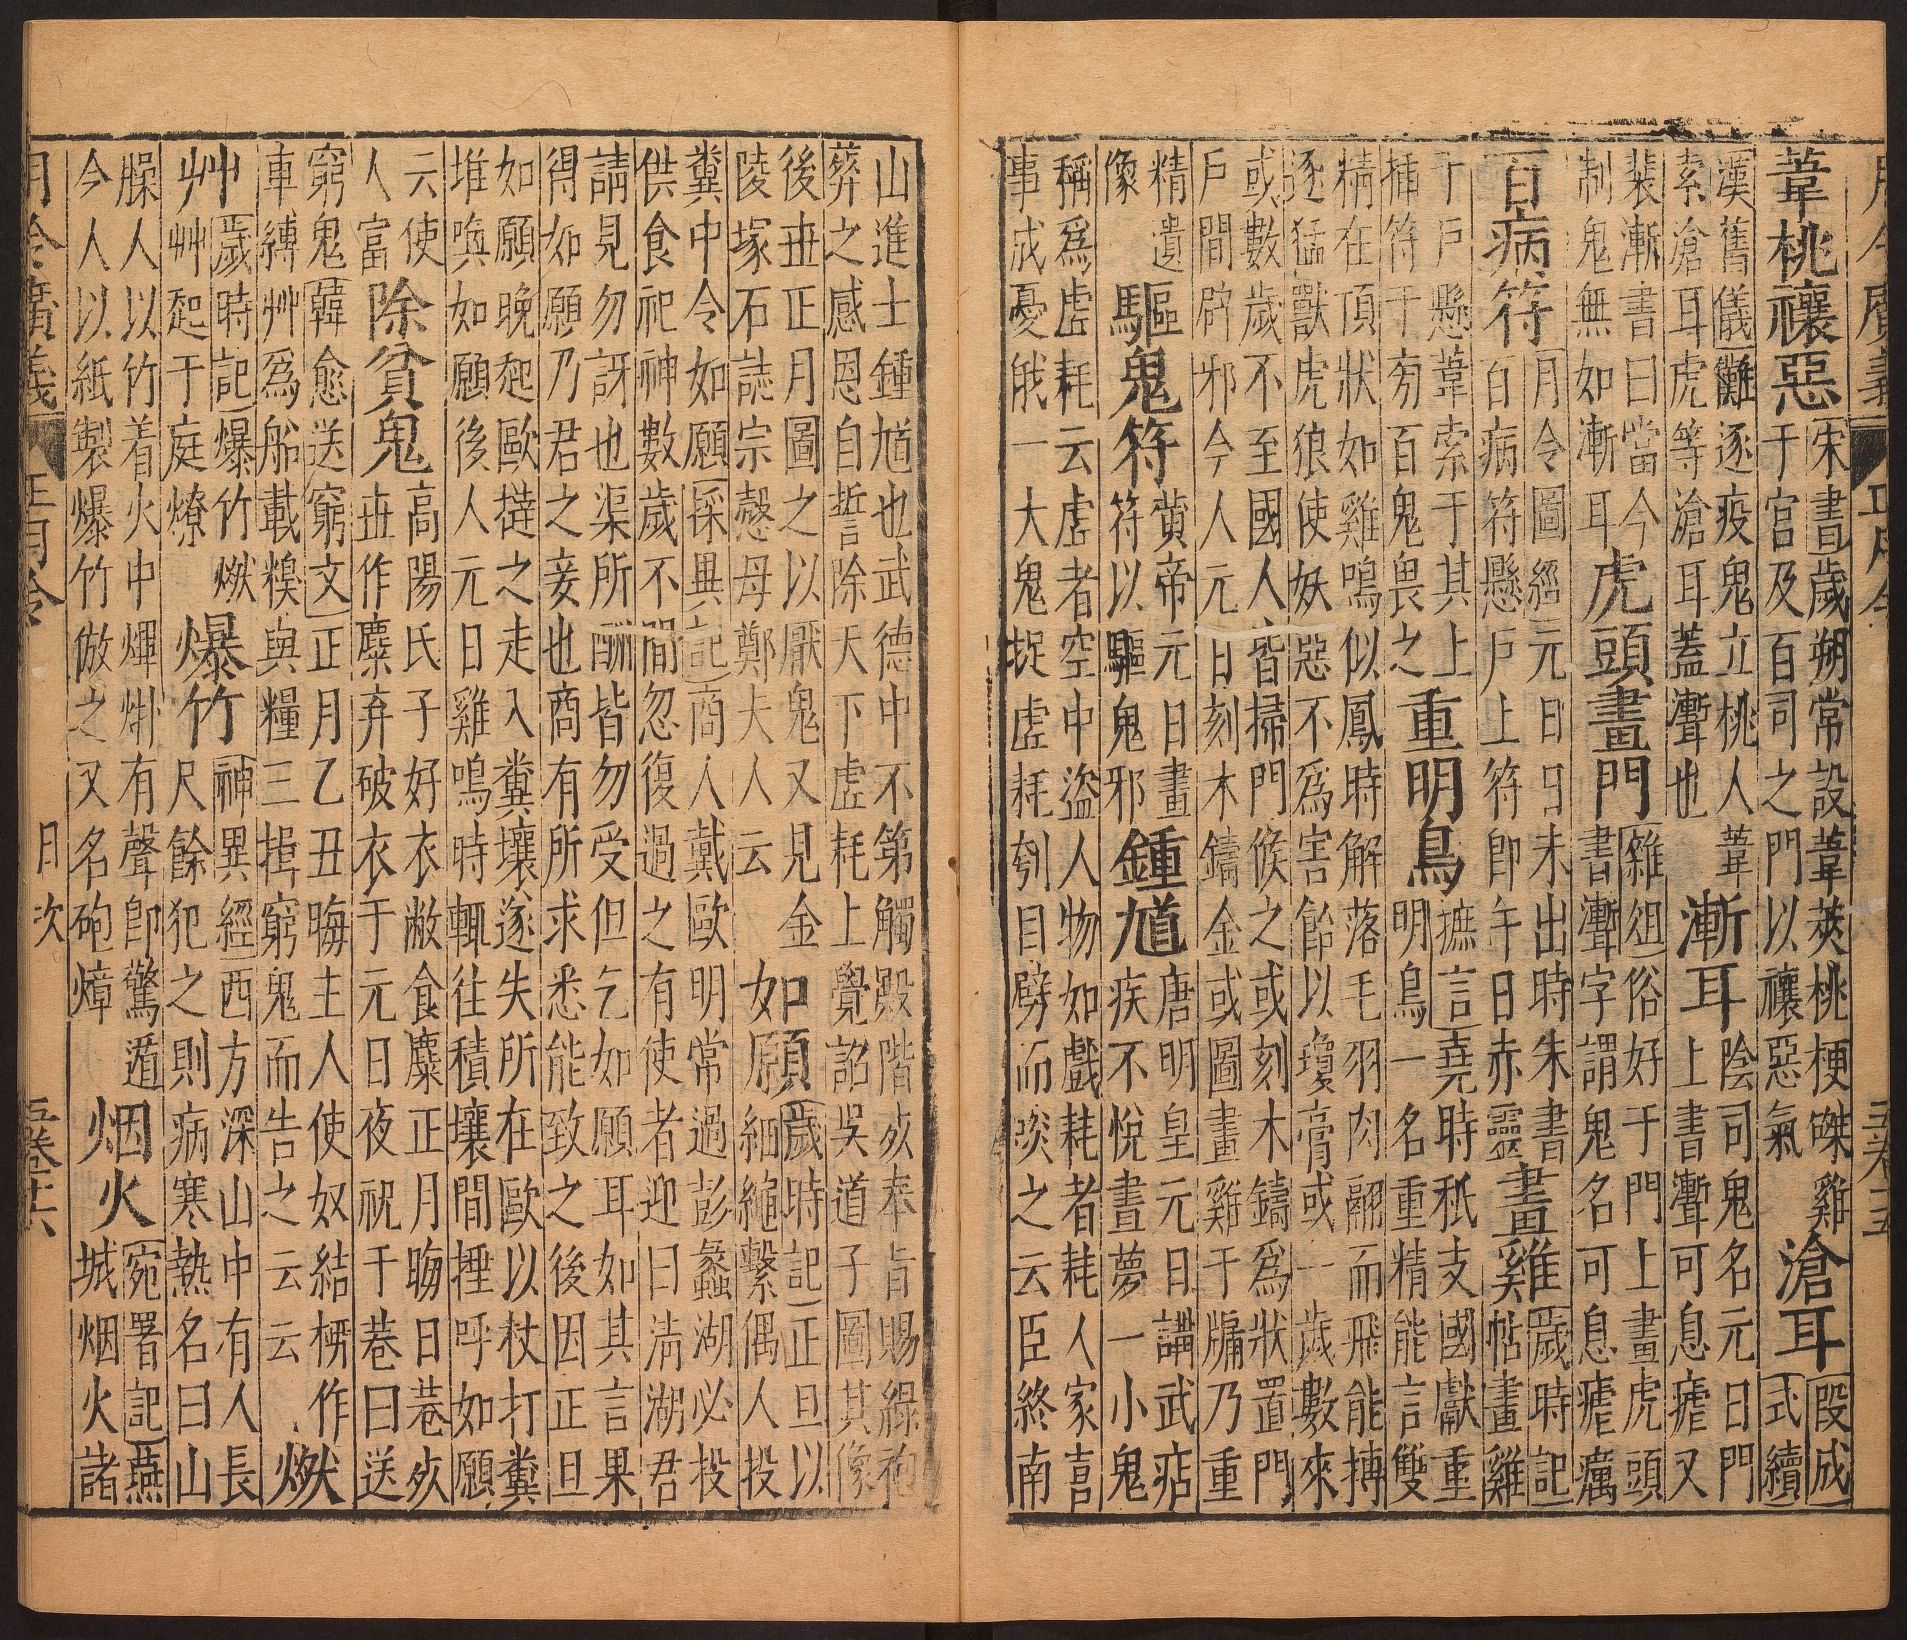 月令廣義 正月令 五卷十五
葦桃禳惡
宋書歲朔常設葦茭桃梗磔雞
于宮及百司之門以禳惡氣
滄耳
段成
式續
漢舊儀儺逐疫鬼立桃人葦
索滄耳虎等滄耳蓋聻也
漸耳
陰司鬼名元日門
上書聻可息瘧又
裴漸書曰當今
制鬼無如漸耳
虎頭畫門
雜俎俗好于門上畫虎頭
書聻字謂鬼名可息瘧癘
百病符
月令圖經元日日未出時朱書
百病符懸戶上符即午日赤靈
畫雞
歲時記
帖畫雞
于戶懸葦索于其上
插符于旁百鬼畏之
重明鳥
摭言堯時秖支國獻重
明鳥一名重精能言雙
精在頂狀如雞鳴似鳳時解落毛羽肉翮而飛能搏
逐猛獸虎狼使妖惡不為害飴以瓊膏或一歲數來
或數歲不至國人皆掃門候之或刻木鑄為狀置門
戶間辟邪今人元日刻木鑄金或圖畫雞于牖乃重
精遺
像
驅鬼符
黃帝元日畫
符以驅鬼邪
鍾馗
唐明皇元日講武痁
疾不悅晝夢一小鬼
稱爲虛耗云虛者空中盜人物如戲耗者耗人家喜
事成憂俄一大鬼捉虛耗刳目劈而啖之云臣終南
山進士鍾馗也武德中不第觸殿階死奉旨賜綠袍
葬之感恩自誓除天下虛耗上覺詔吳道子圖其像
後世正月圖之以厭鬼又見金
陵塚石誌宗慤母鄭夫人云
如願
歲時記正旦以
細繩繫偶人投
糞中令如願採異記商人戴歐明常過彭蠡湖必投
供食祀神數歲不間忽復過之有使者迎曰淸湖君
請見勿訝也渠所酬皆勿受但乞如願耳如其言果
得如願乃君之妾也商有所求悉能致之後因正旦
如願晚起歐撻之走入糞壤遂失所在歐以杖打糞
堆喚如願後人元日雞鳴時輒往積壤間捶呼如願
云使
人富
除貧鬼
高陽氏子好衣敝食糜正月晦日巷死
世作糜弃破衣于元日夜祝于巷曰送
窮鬼韓愈送窮文正月乙丑晦主人使奴結柳作
車縛艸爲船載糗與糧三揖窮鬼而告之云云
燃
艸
歲時記爆竹燃
艸艸起于庭燎
爆竹
神異經西方深山中有人長
尺餘犯之則病寒熱名曰山
臊人以竹着火中熚烞有聲即驚遁
今人以紙製爆竹倣之又名砲㸌
烟火
宛署記燕
城烟火諸
月令廣義 正月令 日次 五卷十六